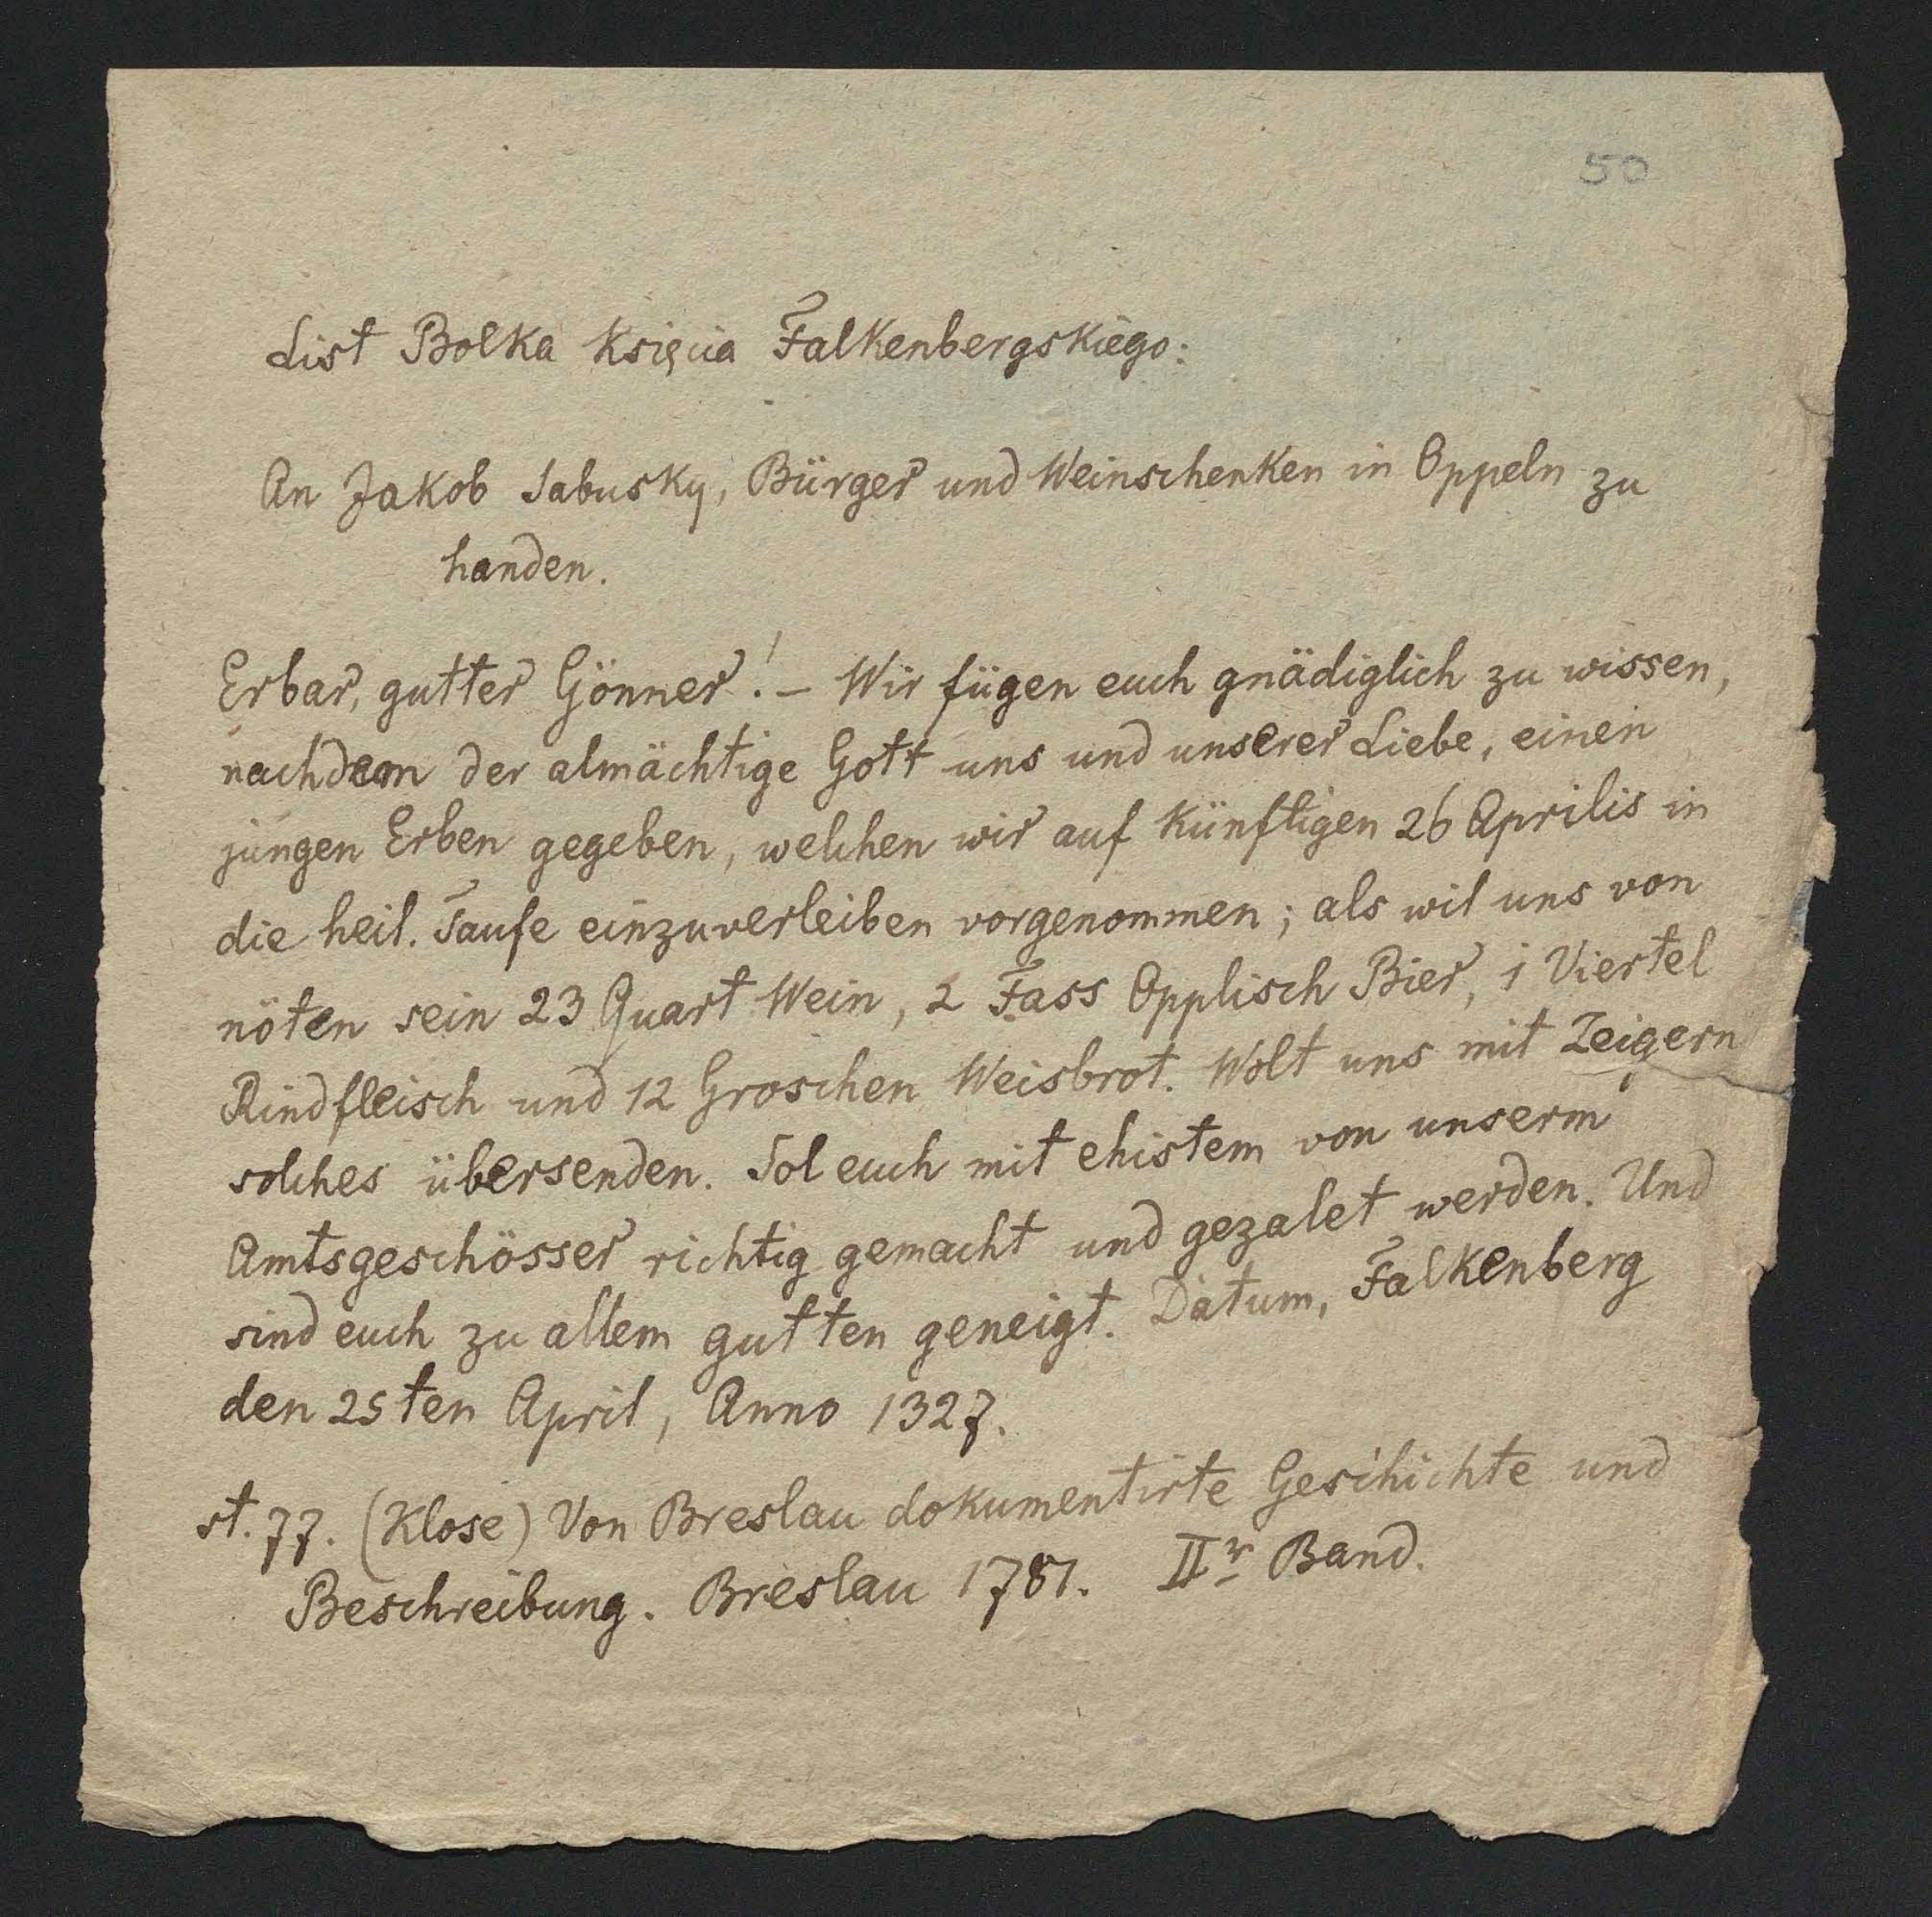 50
List Bolka Księcia Falkenbergskiego:
An Jakob Sabusky, Bürger und Weinschenken in Oppeln zu
handen.
Erbar, gutter Gönner! – Wir fügen euch gnädiglich zu wissen,
nachdem der almächtige Gott uns und unserer Liebe, einen
jungen Erben gegeben, welchen wir auf künftigen 26 Aprilis in
die heil. Taufe einzuverleiben vorgenommen; als wil uns von
nöten sein 23 Quart Wein, 2 Fass Opplisch Bier, 1 Viertel
Rindfleisch und 12 Groschen Weisbrot. Wolt uns mit Zeigern
solches übersenden. Sol euch mit ehistem von unserm
Amtsgeschösser richtig gemacht und gezalet werden. Und
sind euch zu allem gutten geneigt. Datum, Falkenberg
den 25ten April, Anno 1327.
st. 77. (Klose) Von Breslau dokumentirte Geschichte und
Beschreibung. Breslau 1781. IIr Band.